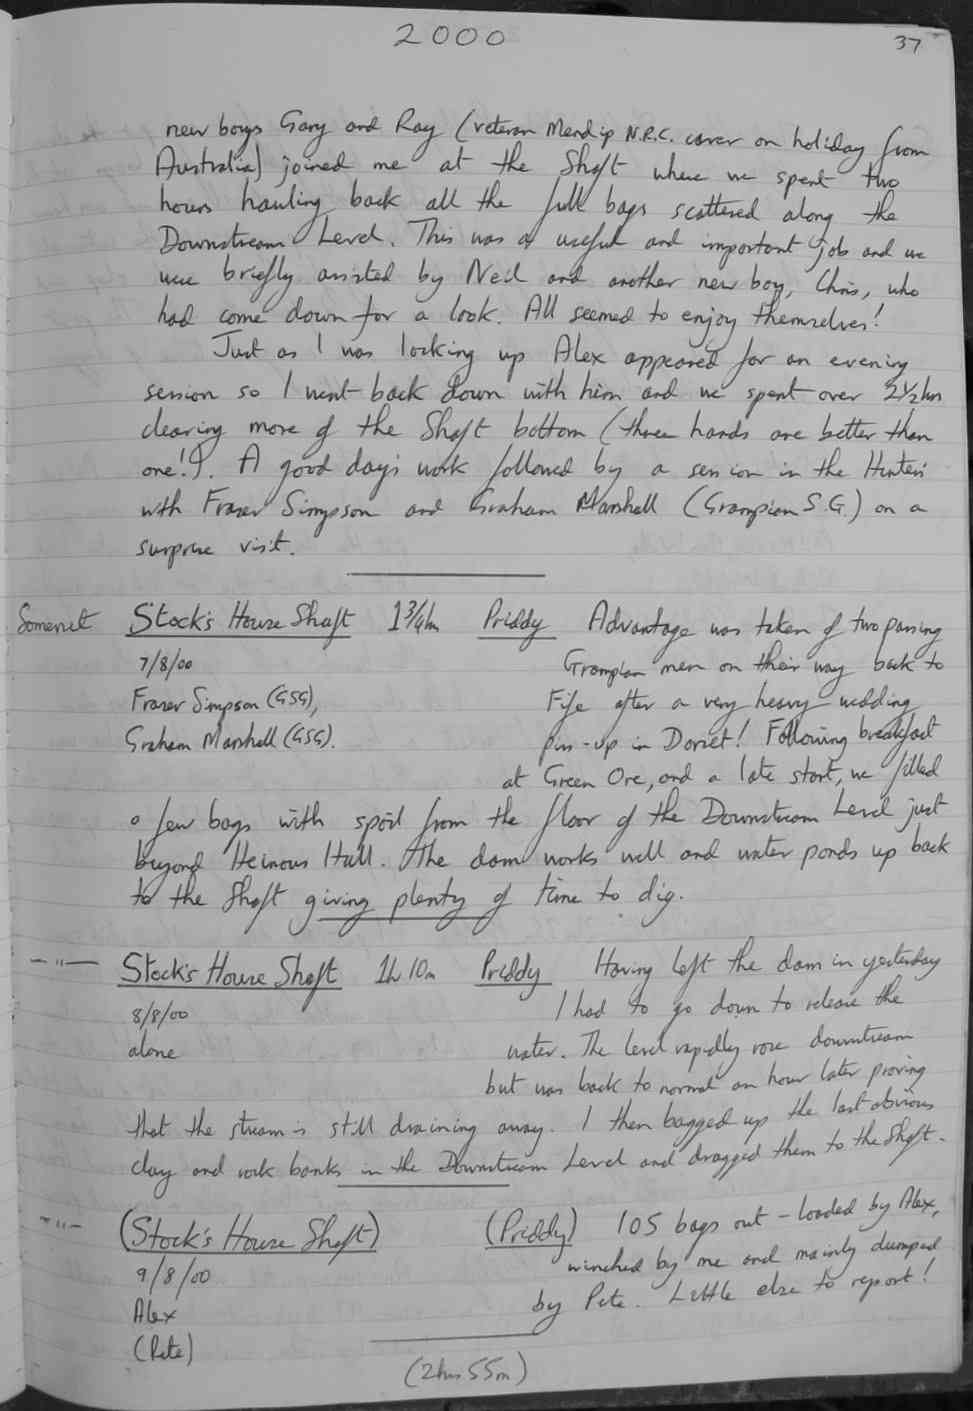 2000
37
new boys Gary and Ray (veteran Mendip N.P.C. caver on holiday from
Australia) joined me at the Shaft where we spent two
hours hauling back all the full bags scattered along the
Downstream Level. This was a useful and important job and we
were briefly assisted by Neil and another new boy, Chris, who
had come down for a look. All seemed to enjoy themselves!
Just as I was locking up Alex appeared for an evening
session so I went back down with him and we spent over 2½hrs
clearing more of the Shaft bottom (three hands are better than
one!). A good day's work followed by a session in the Hunters'
with Fraser Simpson and Graham Marshall (Grampian S.G.) on a
surprise visit.
Somerset Stock's House Shaft 1¾hr Priddy Advantage was taken of two passing
7/8/00 Grampian men on their way back to
Fraser Simpson (GSG), Fife after a very heavy wedding
Graham Marshall (GSG). piss-up in Dorset! Following breakfast
at Green Ore, and a late start, we filled
a few bags with spoil from the floor of the Downstream Level just
beyond Heinous Hall. The dam works well and water ponds up back
to the Shaft giving plenty of time to dig.
—"— Stock's House Shaft 1h 10m Priddy Having left the dam in yesterday
8/8/00 I had to go down to release the
alone water. The level rapidly rose downstream
but was back to normal an hour later proving
that the stream is still draining away. I then bagged up the last obvious
clay and rock banks in the Downstream Level and dragged them to the Shaft.
—"— (Stock's House Shaft) (Priddy) 105 bags out - loaded by Alex,
9/8/00 winched by me and mainly dumped
Alex by Pete. Little else to report!
(Pete)
(2hrs 55m)